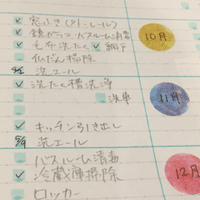 ✓ 窓ふき(サトレール)
✓ 鏡みがき バスルーム消毒
✓ 毛布洗たく ✓ 網戸
✓ 仏だん掃除
洗エール
✓ 洗たく槽洗浄
洗車
10月
11月
✓ キッチン引き出し
洗エール
バスルーム消毒
✓ 冷蔵庫掃除
ロッカー
12月